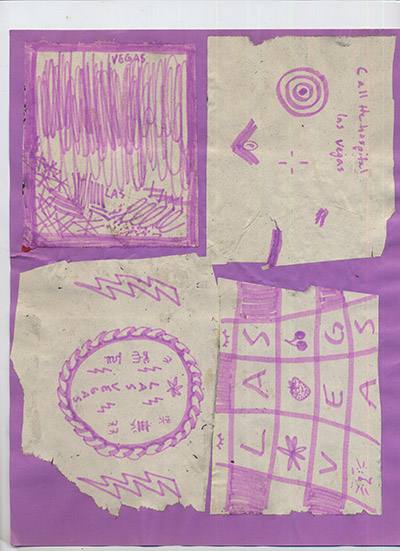 VEGAS
LAS
Call the hospital
las vegas
LAS
VEGAS
LAS
VEGAS